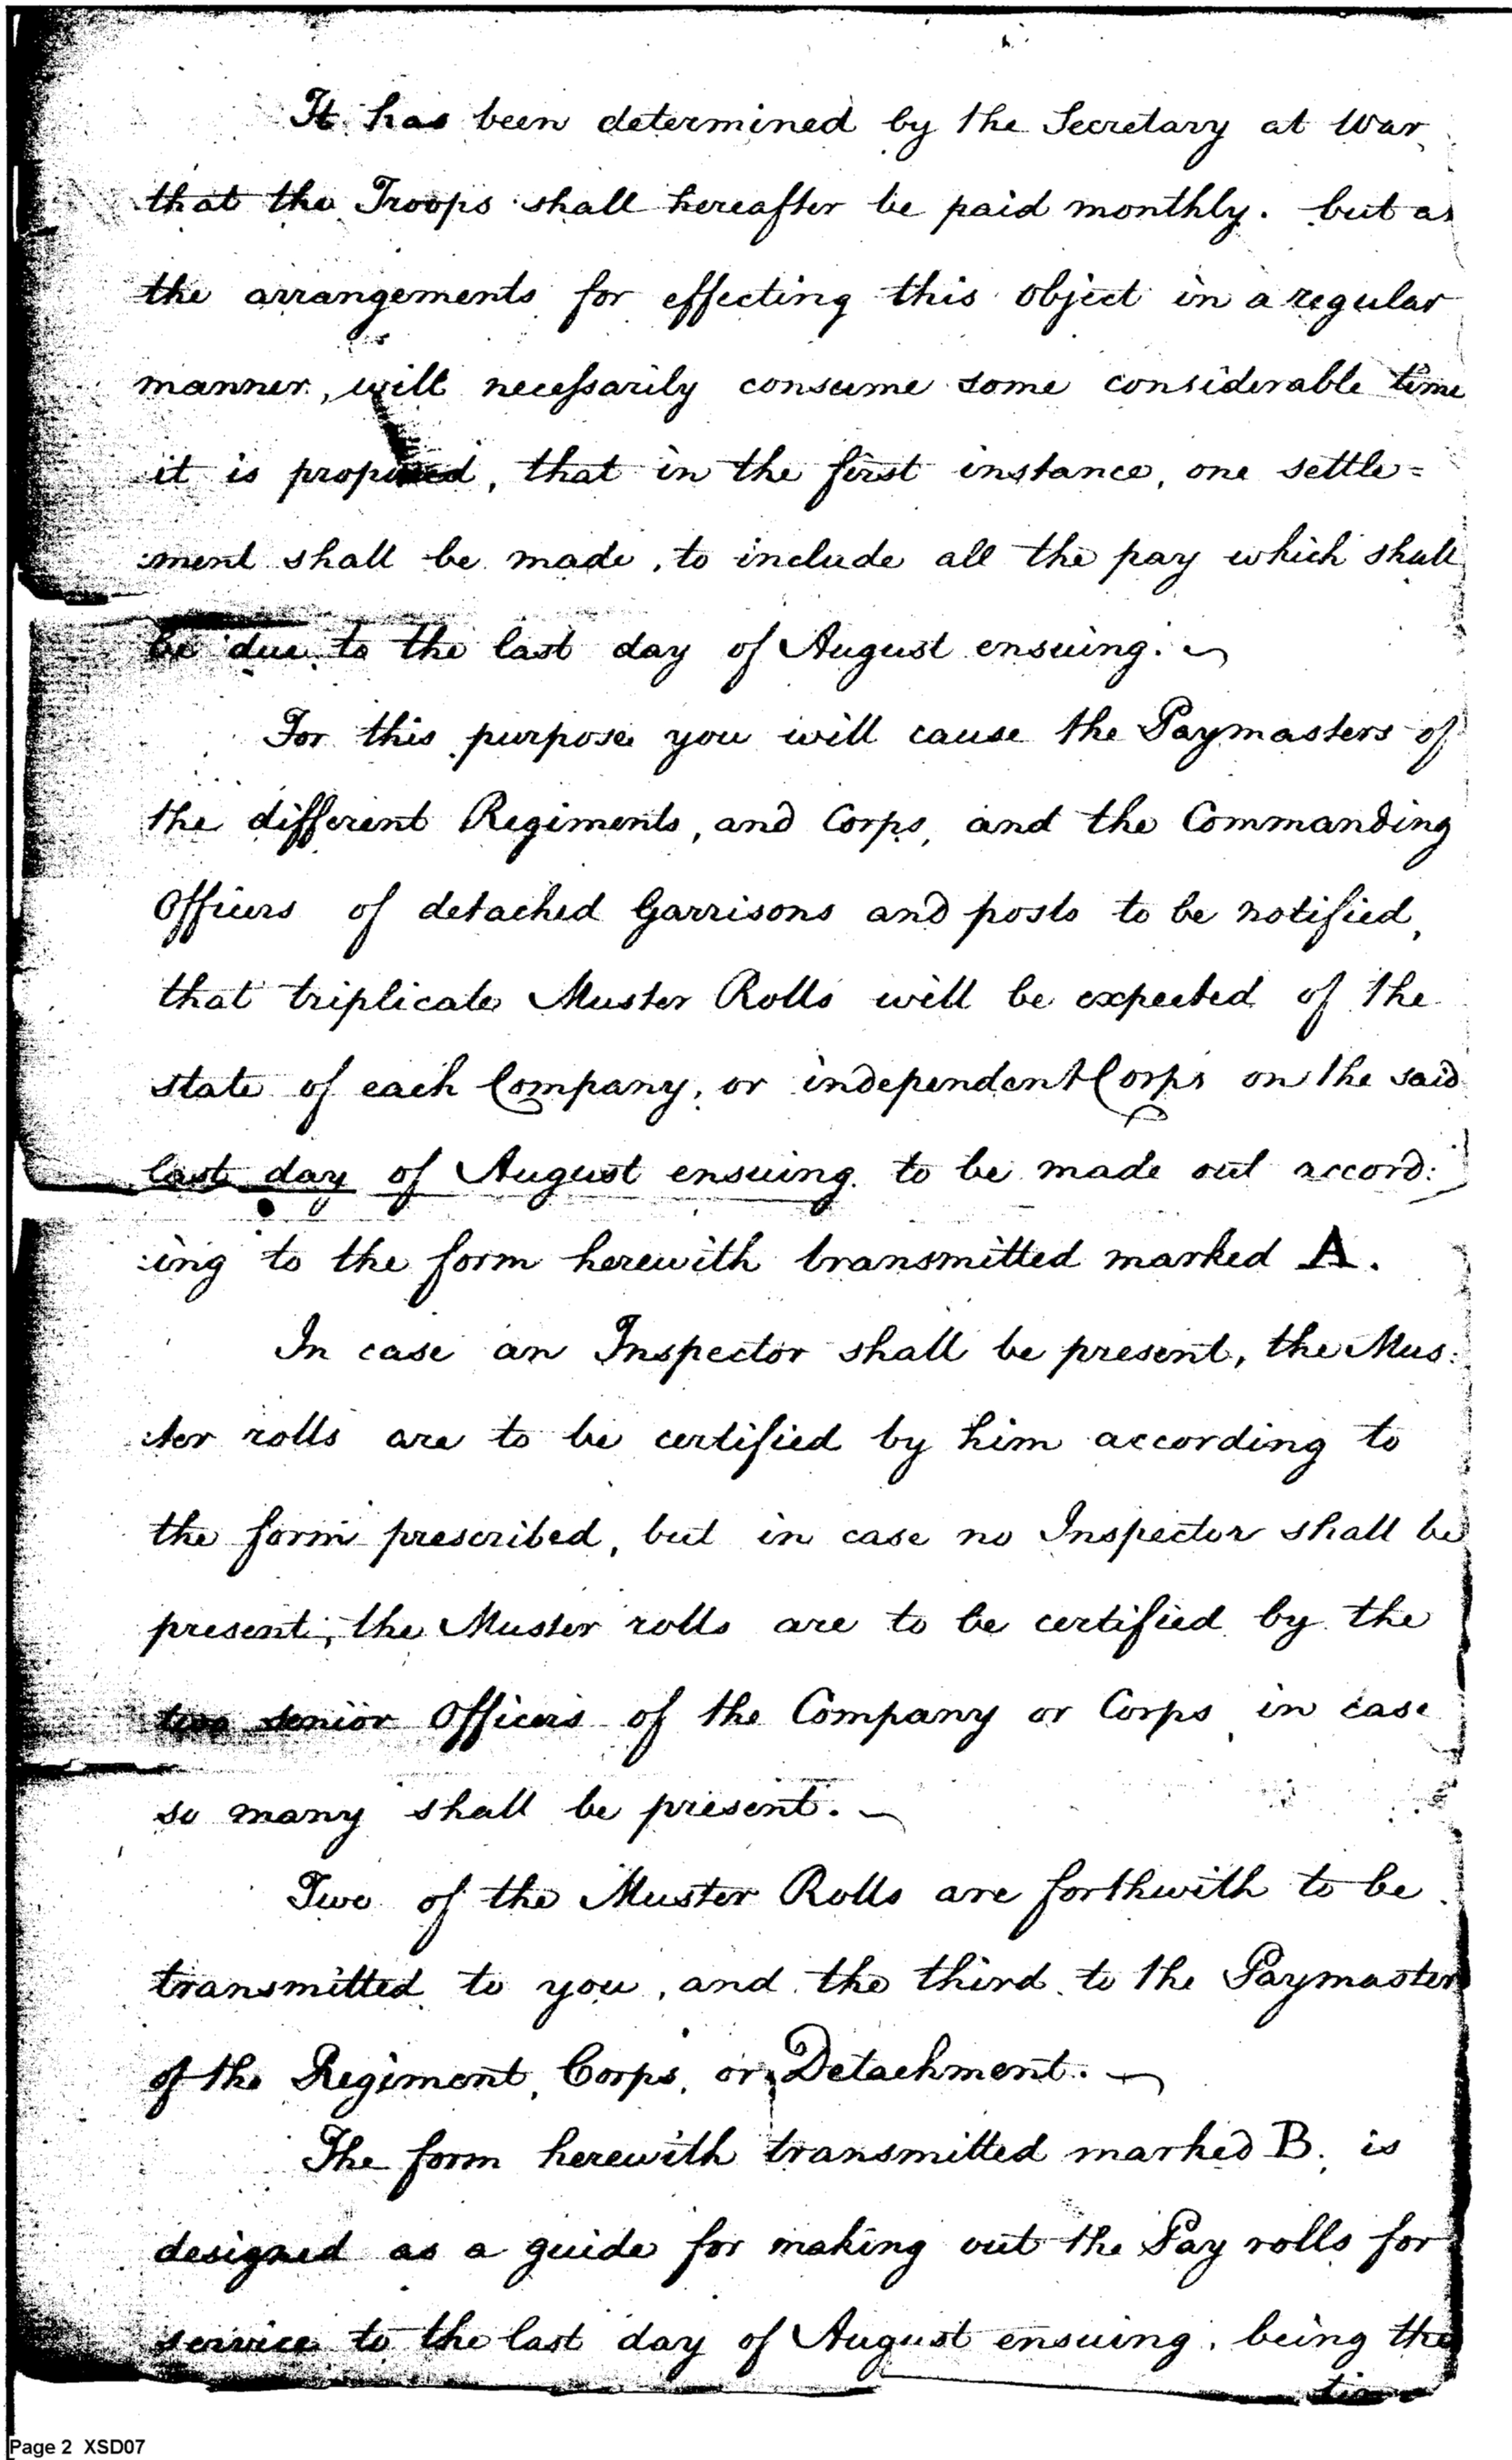 It has been determined by the Secretary at War
that the Troops shall hereafter be paid monthly. but as
the arrangements for effecting this object in a regular
manner, will necessarily consume some considerable time
it is proposed, that in the first instance, one settle=
:ment shall be made, to include all the pay which shall
be due to the last day of August ensuing.
For this purpose you will cause the Paymasters of
the different Regiments, and Corps, and the Commanding
Officers of detached Garrisons and posts to be notified,
that triplicate Muster Rolls will be expected of the
state of each Company, or independent Corps on the said
last day of August ensuing to be made out accord:
:ing to the form herewith transmitted marked A.
In case an Inspector shall be present, the Mus:
:ter rolls are to be certified by him according to
the form prescribed, but in case no Inspector shall be
present, the Muster rolls are to be certified by the
two senior Officers of the Company or Corps, in case
so many shall be present.
Two of the Muster Rolls are forthwith to be
transmitted to you, and the third to the Paymaster
of the Regiment, Corps, or Detachment.
The form herewith transmitted marked B. is
designed as a guide for making out the Pay rolls for
service to the last day of August ensuing, being the
time
Page 2 XSD07